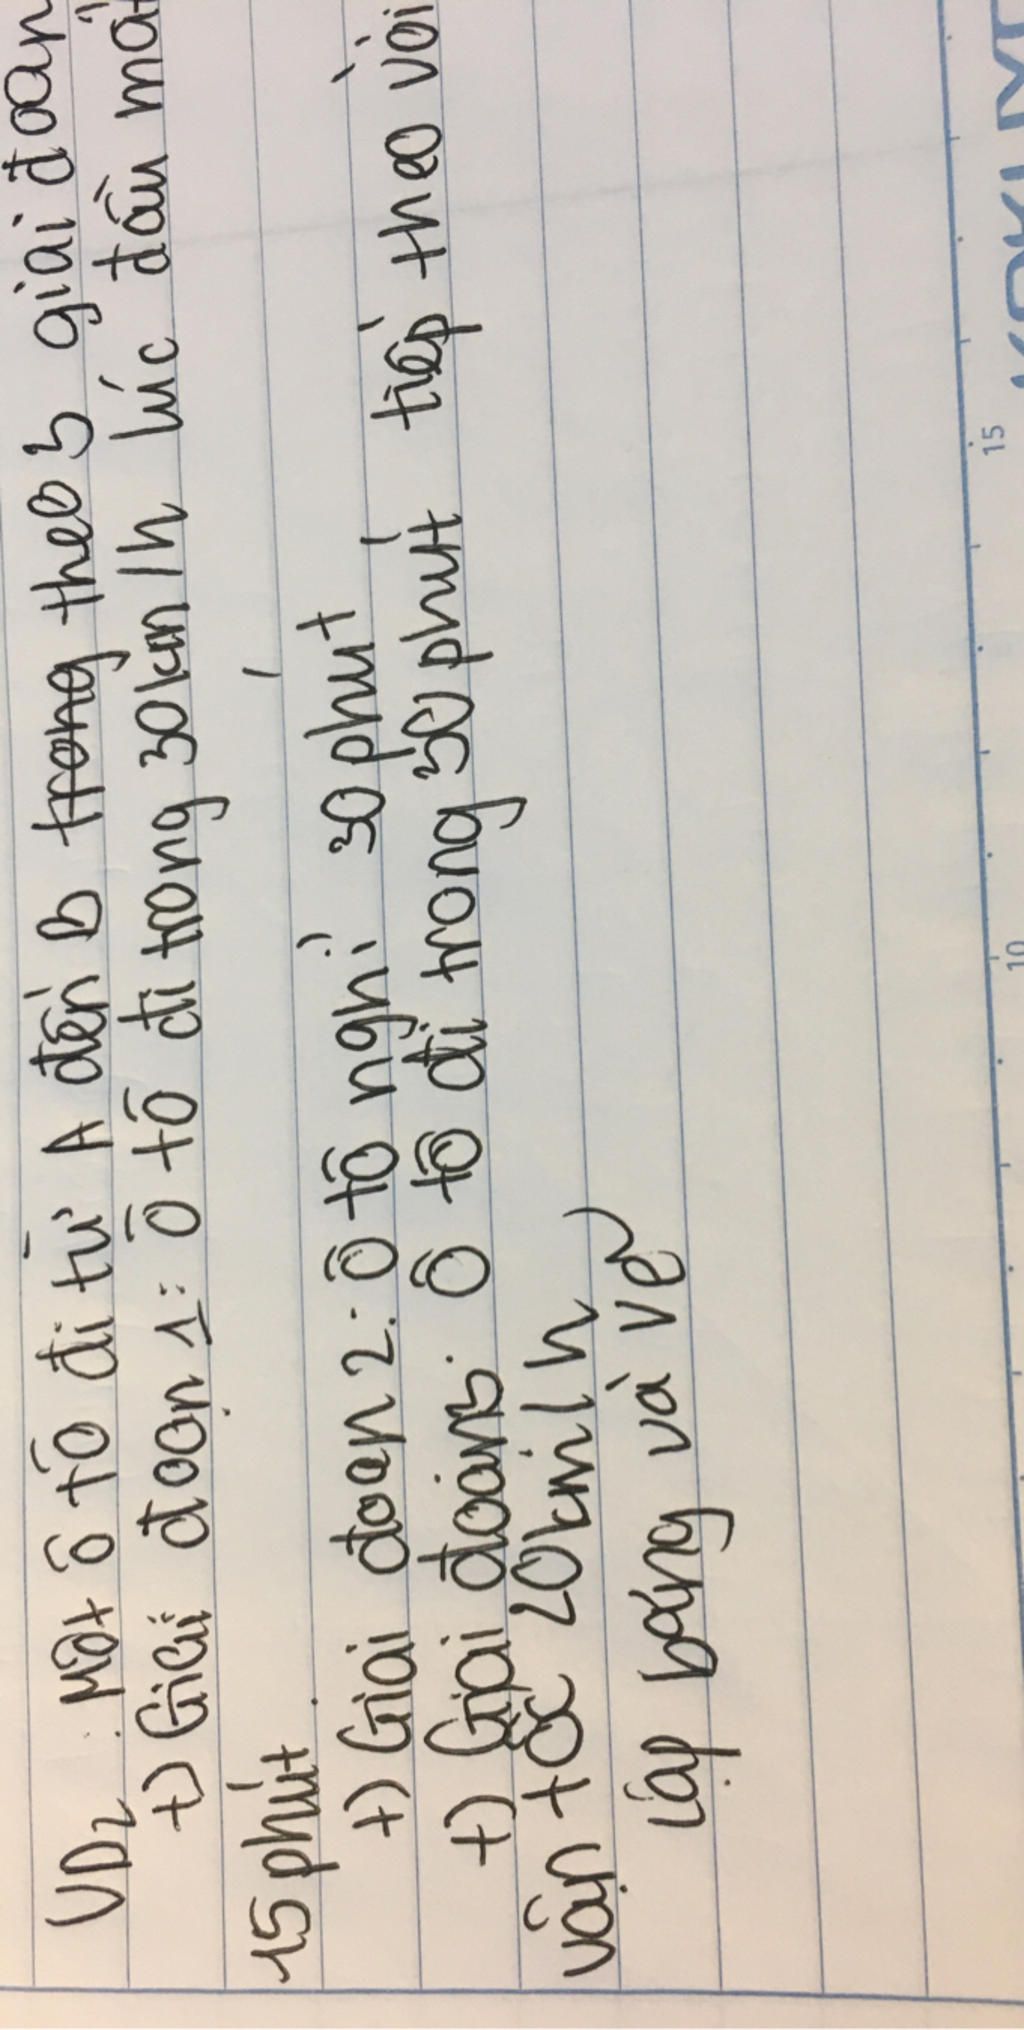 VD2. Một ô tô đi từ A đến B trong theo 3 giai đoạn
+) Giai đoạn 1: Ô tô đi trong 30km/h lúc đầu mất
15 phút
+) Giai đoạn 2: Ô tô nghỉ 30 phút
+) Giai đoạn 3: Ô tô đi trong 30 phút tiếp theo với
vận tốc 20km/h
Lập bảng và vẽ
10
15